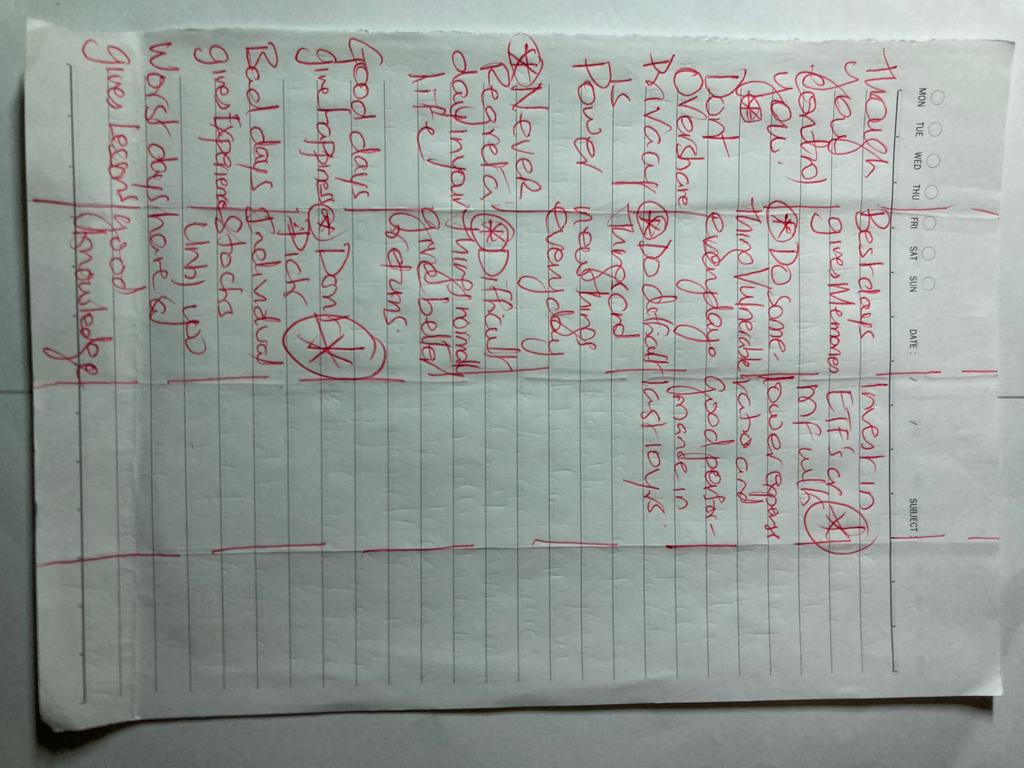 MON TUE WED THU FRI SAT SUN DATE : / / SUBJECT :
Though
you
Control
you.
Dont
Overshare
Privacy
is
Power
Never
Regret a
day in your
life
Good days
give happiness
Bad days
gives Experience
Worst days
gives Lessons
Best days
gives Memories
Do some-
thing Vulnerable
everyday.
Do difficult
things and
new things
everyday
Difficult
things normally
give better
returns.
Dont
Pick
Individual
Stocks
Until you
have a
good
knowledge
Invest in
ETF's or
MF with
lower expense
ratio and
good perfor-
mance in
last 10 yrs.